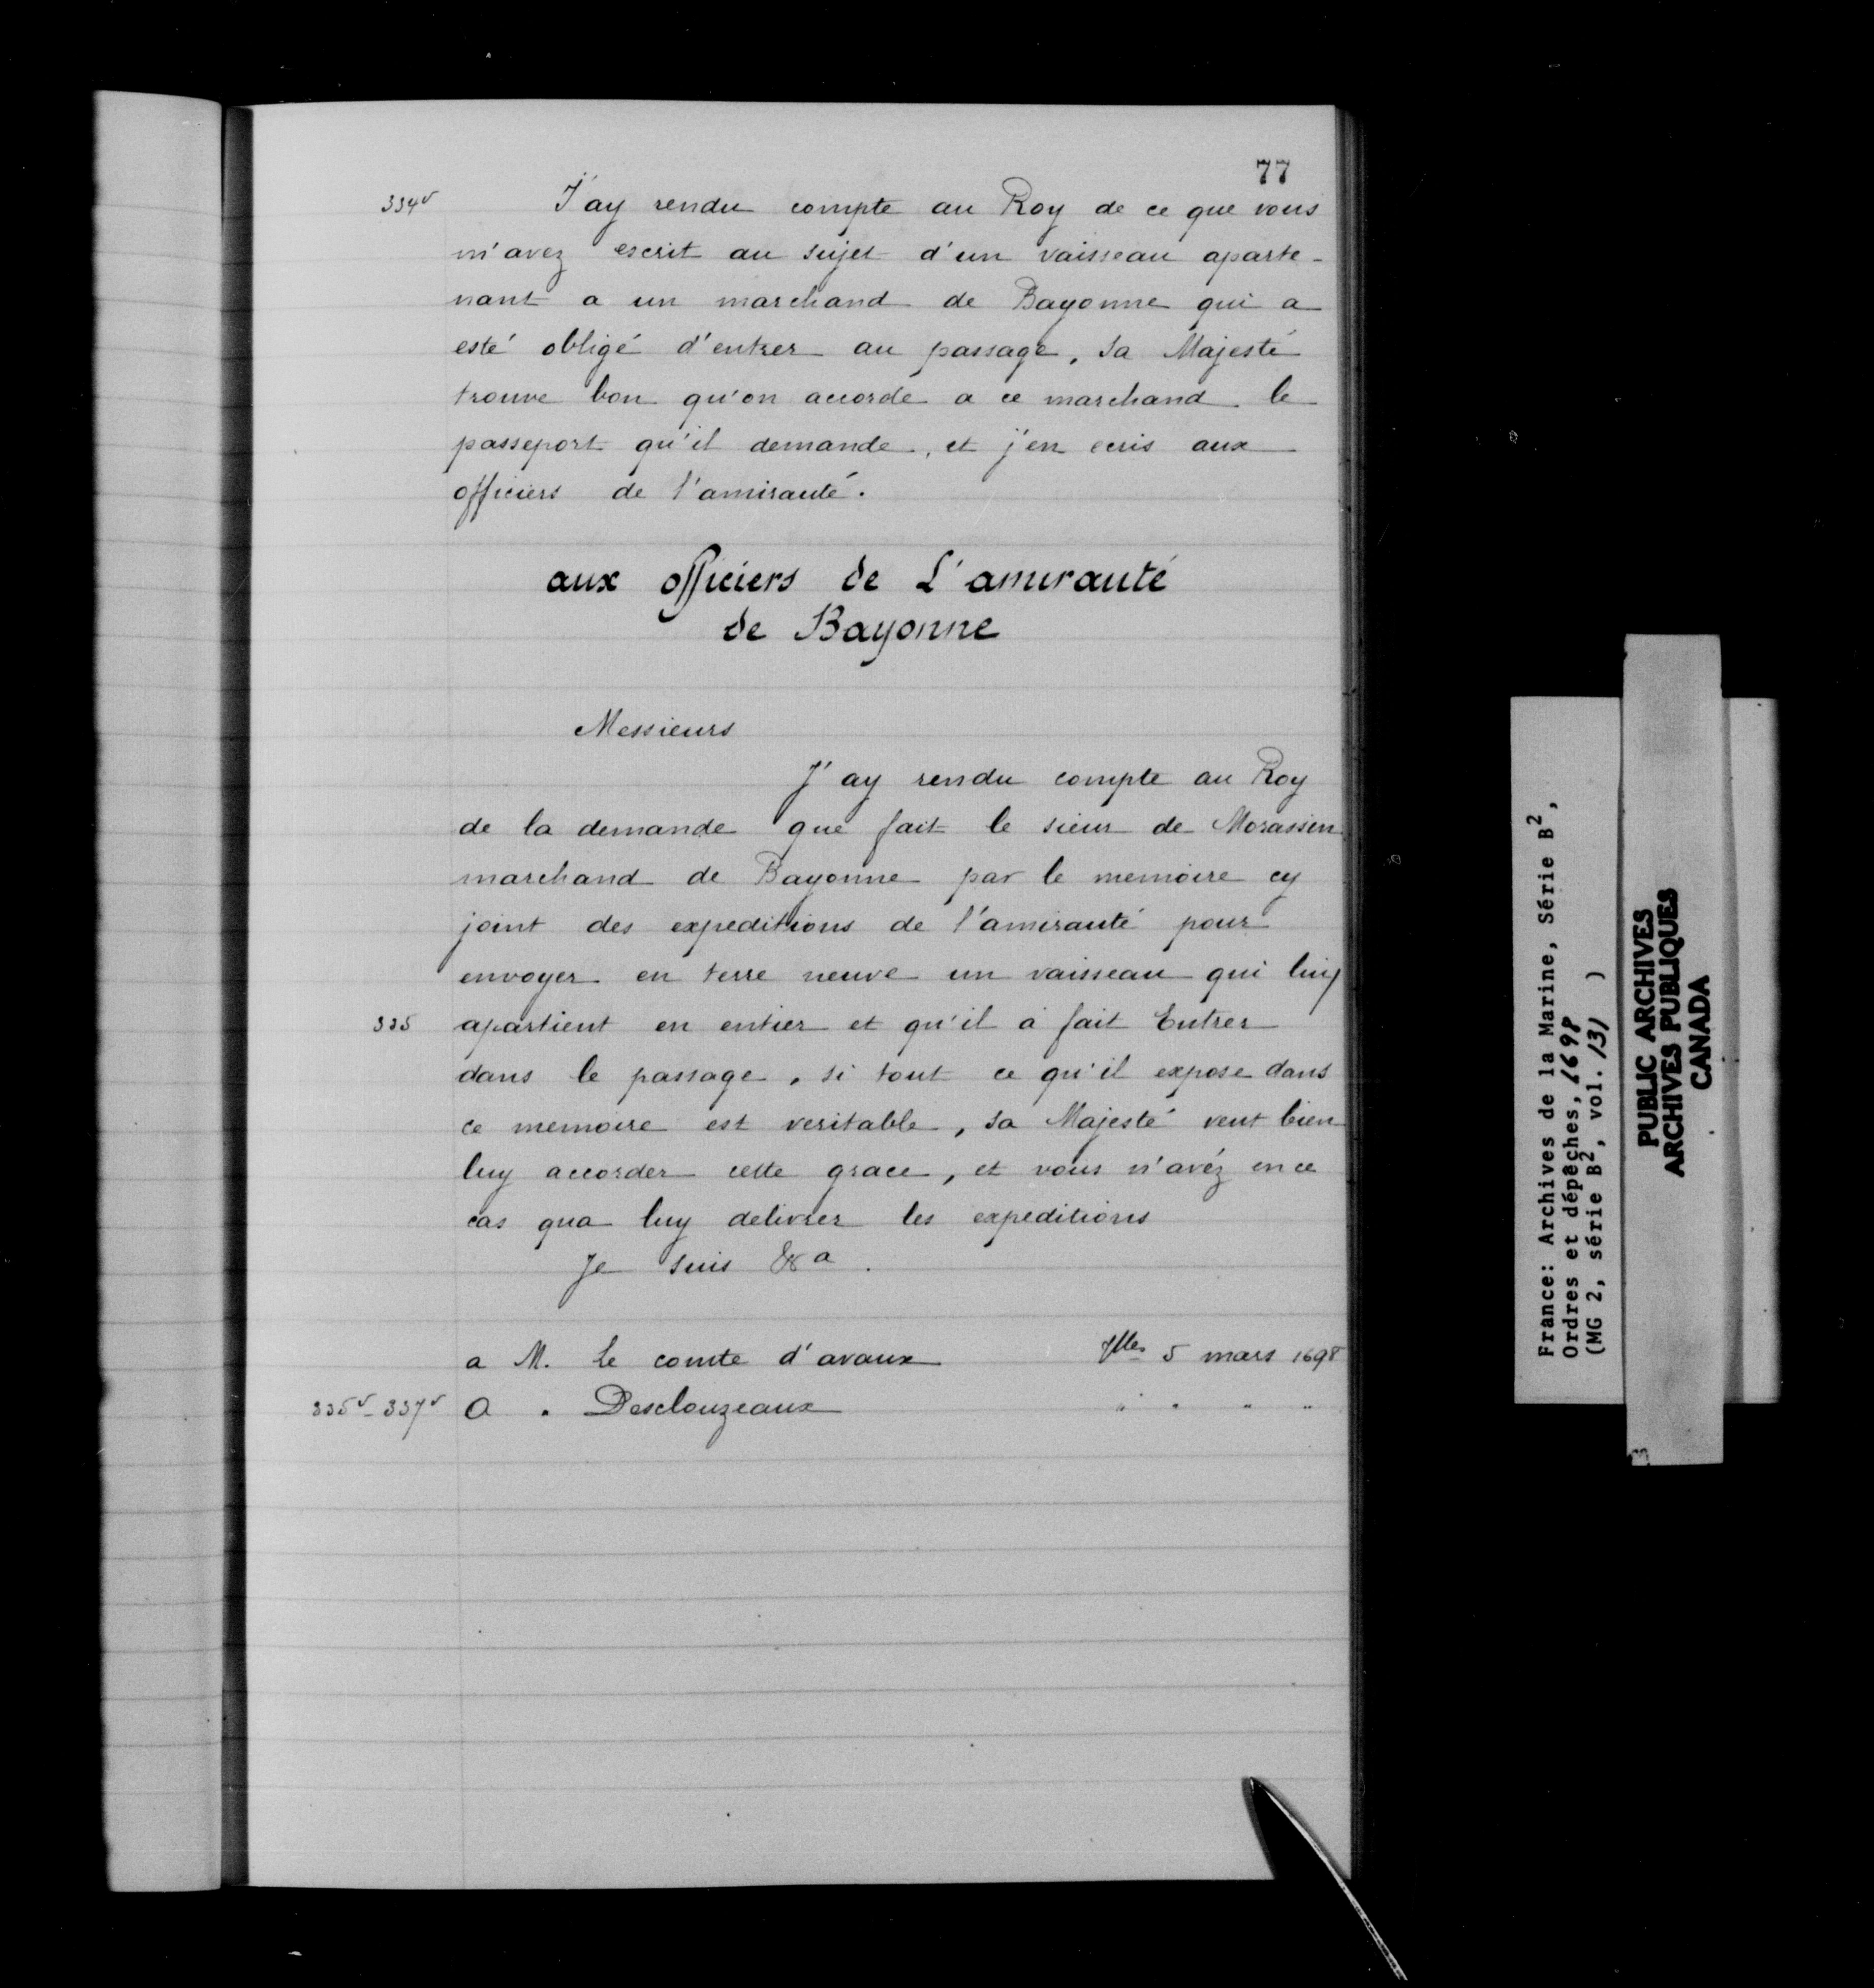 77
334v J'ay rendu compte au Roy de ce que vous
m'avez escrit au sujet d'un vaisseau aparte-
nant a un marchand de Bayonne qui a
esté obligé d'entrer au passage, sa Majesté
trouve bon qu'on accorde a ce marchand le
passeport qu'il demande, et j'en ecris aux
officiers de l'amirauté.
aux officiers de L'amirauté
de Bayonne
Messieurs
J'ay rendu compte au Roy
de la demande que fait le sieur de Morassin
marchand de Bayonne par le memoire cy
joint des expeditions de l'amirauté pour
envoyer en terre neuve un vaisseau qui luy
335 apartient en entier et qu'il à fait Entrer
dans le passage, si tout ce qu'il expose dans
ce memoire est veritable, sa Majesté veut bien
luy accorder cette grace, et vous n'avéz en ce
cas qua luy delivrer les expeditions
Je suis &a.
a M. Le comte d'avaux Vlles 5 mars 1698
335v-337v a " Desclouzeaux " " " "
France: Archives de la Marine, Série B2,
Ordres et dépêches, 1698
(MG 2, série B2, vol. 131 )
PUBLIC ARCHIVES
ARCHIVES PUBLIQUES
CANADA